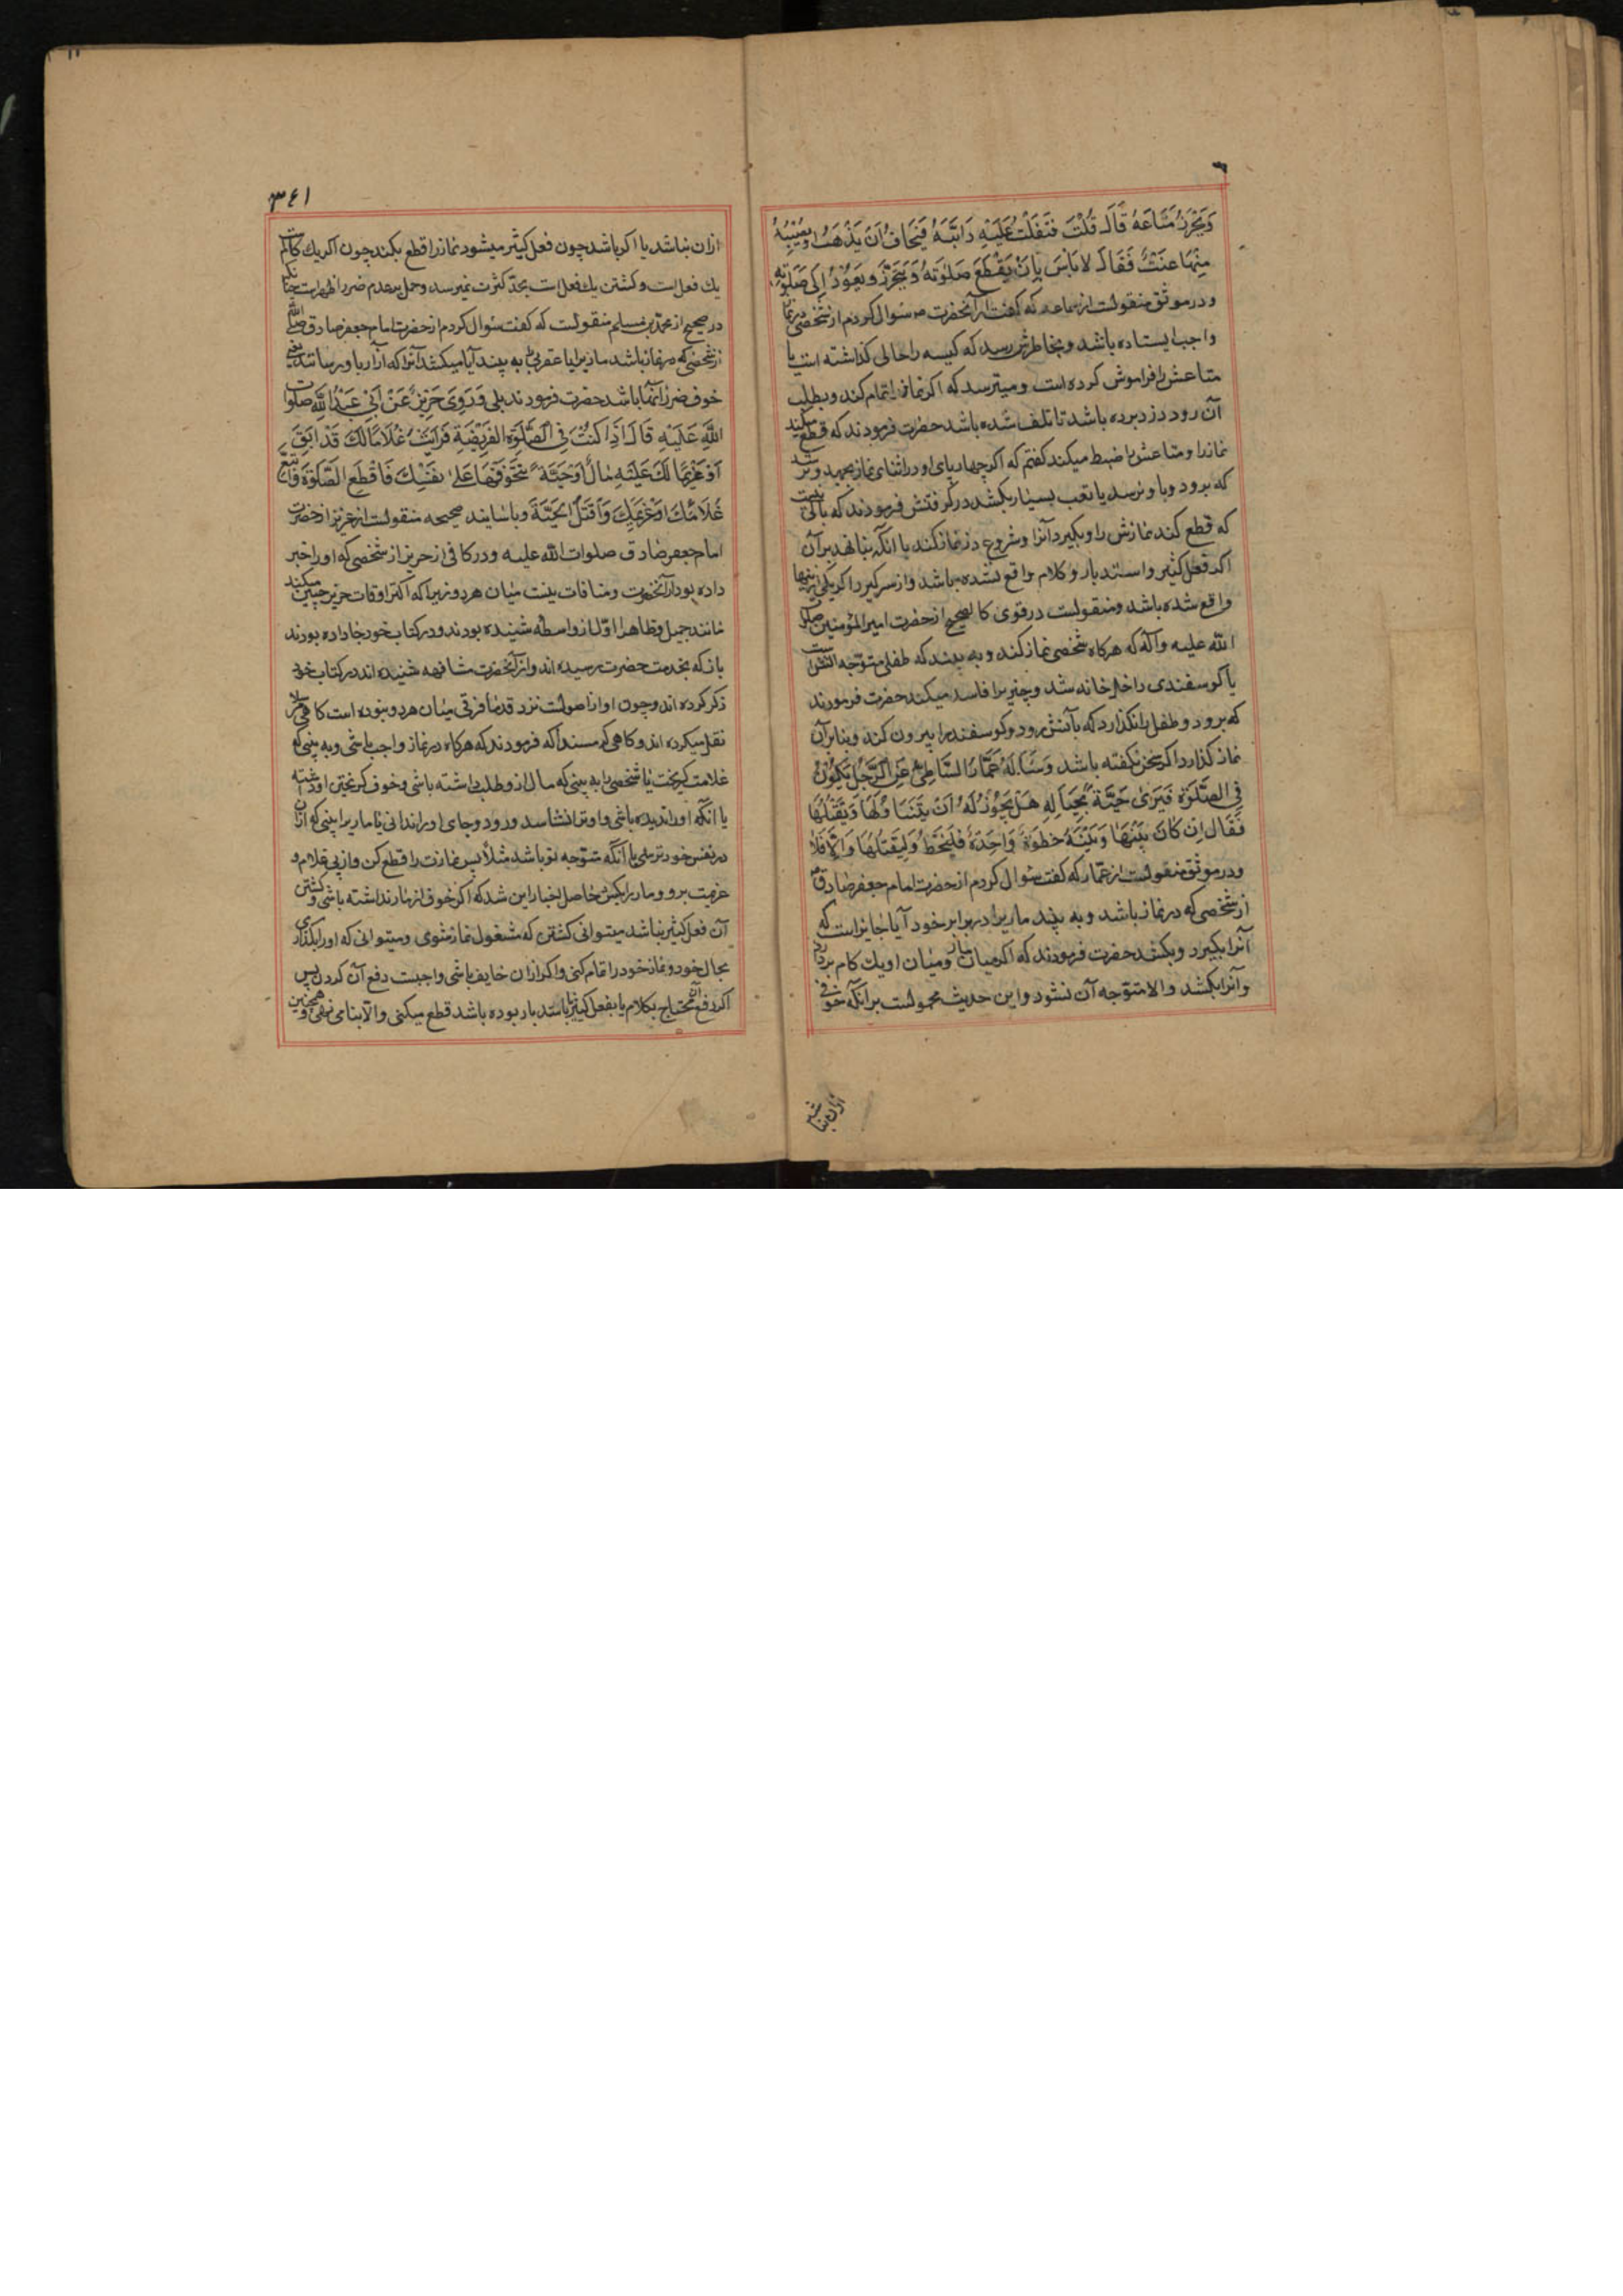 وَيَتَحَرَّزُ مَتَاعَهُ قَالَ قُلْتُ فَتَفَلَّتُ عَلَيْهِ دَابَّتُهُ فَيَخَافُ اَنْ يَذْهَبَ اويُصِيْبُهُ
مِنْهَا عنَتٌ فَقَالَ لا بَاْسَ بِاَنْ يَقْطَعَ صَلٰوتَهُ وَيَتَحَرَّزَ ويَعُوْدُ اِلَى صَلَوتِهِ
ودر موثق منقولست از سماعه كه كفت از آنحضرت ص سؤال كردم از شخصى درنماز
واجب ايستاده باشد وبخاطرش رسيد كه كيسه را جائى كذاشته است يا
متاعش را فراموش كرده است وميترسد كه اكر نماز را تمام كند وبطلب
آن رود دزد برده باشد تا تلف شده باشد حضرت فرمودند كه قطع ميكند
نماز را ومتاعش را ضبط ميكند كفتم كه اكر چهارپاى او در اثناى نماز بجهد وترسد
كه برود وباو نرسد يا تعب بسيار بكشد در كرفتش فرمودند كه باكى نيست
كه قطع كند نمازش را وبكيرد آنرا وشروع در نماز كند با انكه بنا نهد برآن
اكر فعل كثير واستدبار وكلام واقع نشده باشد واز سر كيرد اكر يكى ازينها
واقع شده باشد ومنقولست در قوى كالصحيح از حضرت امير المؤمنين صلوات
الله عليه وآله كه هركاه شخصى نماز كند و به بيند كه طفلى متوجه آتش است
يا كوسفندى داخل خانه شد وچيزيرا فاسد ميكند حضرت فرمودند
كه برود وطفل را نكذارد كه بآتش رود وكوسفند را بيرون كند وبنا برآن
نماز كذارد اكر سخن نكفته باشد وَسَئَالَهُ عَمَّارُ السَّابَاطِىُّ عَنِ الرَّجُلِ يَكُوْنُ
فِى الصَّلٰوةِ فَيَرَىٰ حَيَّةً بِحِيَالِهِ هَلْ يَجُوْزُ لَهُ اَنْ يَتَنَاوَلَهَا وَيَقْتُلَهَا
فَقَالَ اِن كَانَ بَيْنَهَا وَبَيْنَهُ خُطْوَةٌ وَّاحِدَةٌ فَلْيَخْطُ وَلْيَقْتُلْهَا وَاِلَّا فَلَا
ودر موثق منقولست از عمار كه كفت سؤال كردم از حضرت امام جعفر صادق ص
از شخصى كه در نماز باشد و به بيند مار يرا در برابر خود آيا جايز است كه
آنرا بكيرد وبكشد حضرت فرمودند كه اكر ميان مار وميان او يك كام بردارد
وآنرا بكشد والا متوجه آن نشود واين حديث محمولست برانكه خوفى
ازان نباشد
٣٤١
ازان نباشد يا اكر باشد چون فعل كثير ميشود نماز را قطع بكند چون اكر يك كامست
يك فعل است وكشتن يك فعل است بحد كثرت نميرسد وحمل برعدم ضرر اظهر است چنانكه
در صحيح از محمد بن مسلم منقولست كه كفت سؤال كردم از حضرت امام جعفر صادق صلوات الله
از شخصى كه درنماز باشد مار يرا يا عقربى را به بيند آيا ميكشد آنرا كه آزار باو برسانند يعنى
خوف ضرر ازآنها باشد حضرت فرمودند بلى وَرَوَى حَرِيْزٌ عَنْ اَبِى عَبْدِ اللهِ صَلَوَاتُ
اللهِ عَلَيْهِ قَالَ اِذَا كُنْتَ فِى الصَّلٰوةِ الفَرِيْضَةِ فَرَاَيْتَ غُلَامًا لَكَ قَدْ اَبَقَ
اَوْ غَرِيْمًا لَكَ عَلَيْهِ مَالٌ اَوْ حَيَّةً تَتَخَوَّفُهَا عَلىٰ نَفْسِكَ فَاقْطَعِ الصَّلٰوةَ فَاتَّبِعْ
غُلَامَكَ اوْ غَرِيْمَكَ وَاقْتُلِ الحَيَّةَ وباسانيد صحيحه منقولست از حريز از حضرت
امام جعفر صادق صلوات الله عليه ودر كافى از حريز از شخصى كه او را خبر
داده بود از آنحضرت ومنافات نيست ميان هردو زيرا كه اكثر اوقات حريز چنين ميكند
مانند جميل وظاهرا اولا از واسطه شنيده بودند ودر كتاب خود جا داده بودند
باز كه بخدمت حضرت رسيده اند واز آنحضرت مشافهه شنيده اند در كتاب خود
ذكر كرده اند وچون او از اصولست نزد قدما فرقى ميان هردو نبوده است كاهى مرسلا
نقل ميكرده اند وكاهى كه مسندا كه فرمودند كه هركاه در نماز واجب باشى و به بينى كه
غلامت كريخت يا شخصى را به بينى كه مال ازو طلب داشته باشى وخوف كريختن او داشته
يا انكه او را نديده باشى واو ترا نشناسد ورود وجاى او را ندانى يا مار يرا بينى كه ازان
در نفس خود ترسى با آنكه متوجه تو باشد مثلا پس نمازت را قطع كن واز پى غلام و
غريمت برو ومار را بكش حاصل اخبار اين شد كه اكر خوف از مار نداشته باشى وكشتن
آن فعل كثير نباشد ميتوانى كشتن كه مشغول نماز شوى وميتوانى كه او را بكذارى
بحال خود ونماز خود را تمام كنى واكر ازان خايف باشى واجبست دفع آن كردن پس
اكر دفع آن محتاج بكلام يا بفعل كثير يا استدبار بوده باشد قطع ميكنى والا بنا مى نهى وهمچنين